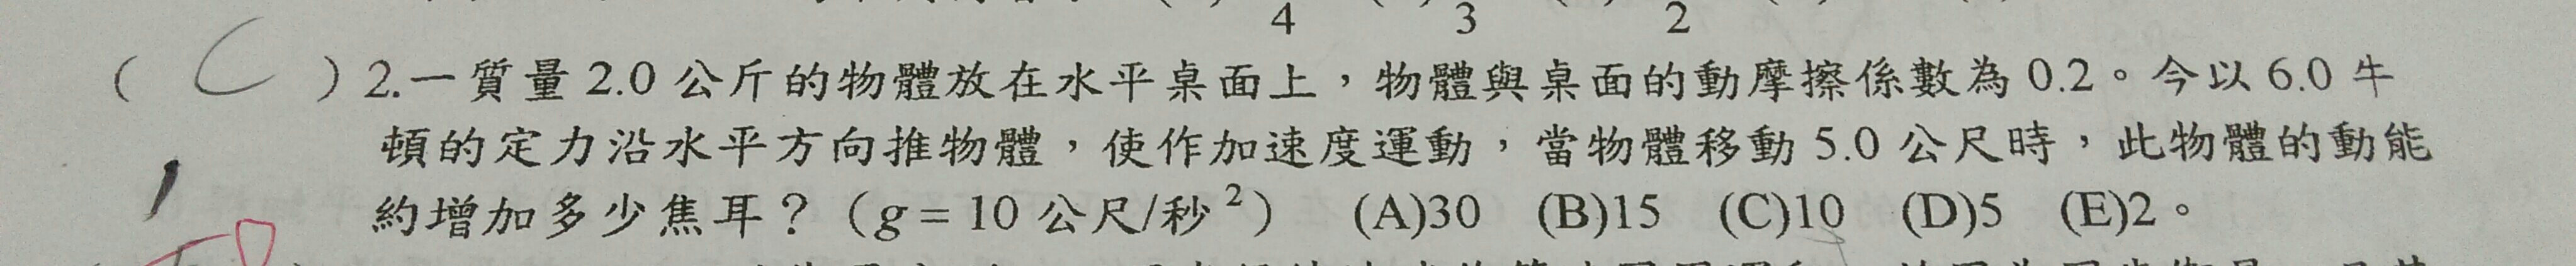 4 3 2
( C ) 2.一質量 2.0 公斤的物體放在水平桌面上，物體與桌面的動摩擦係數為 0.2。今以 6.0 牛
頓的定力沿水平方向推物體，使作加速度運動，當物體移動 5.0 公尺時，此物體的動能
約增加多少焦耳？（g = 10 公尺/秒²） (A)30 (B)15 (C)10 (D)5 (E)2。